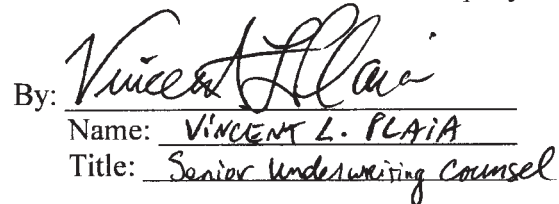 By: Vincent L Plaia
Name: VINCENT L. PLAIA
Title: Senior Underwriting Counsel